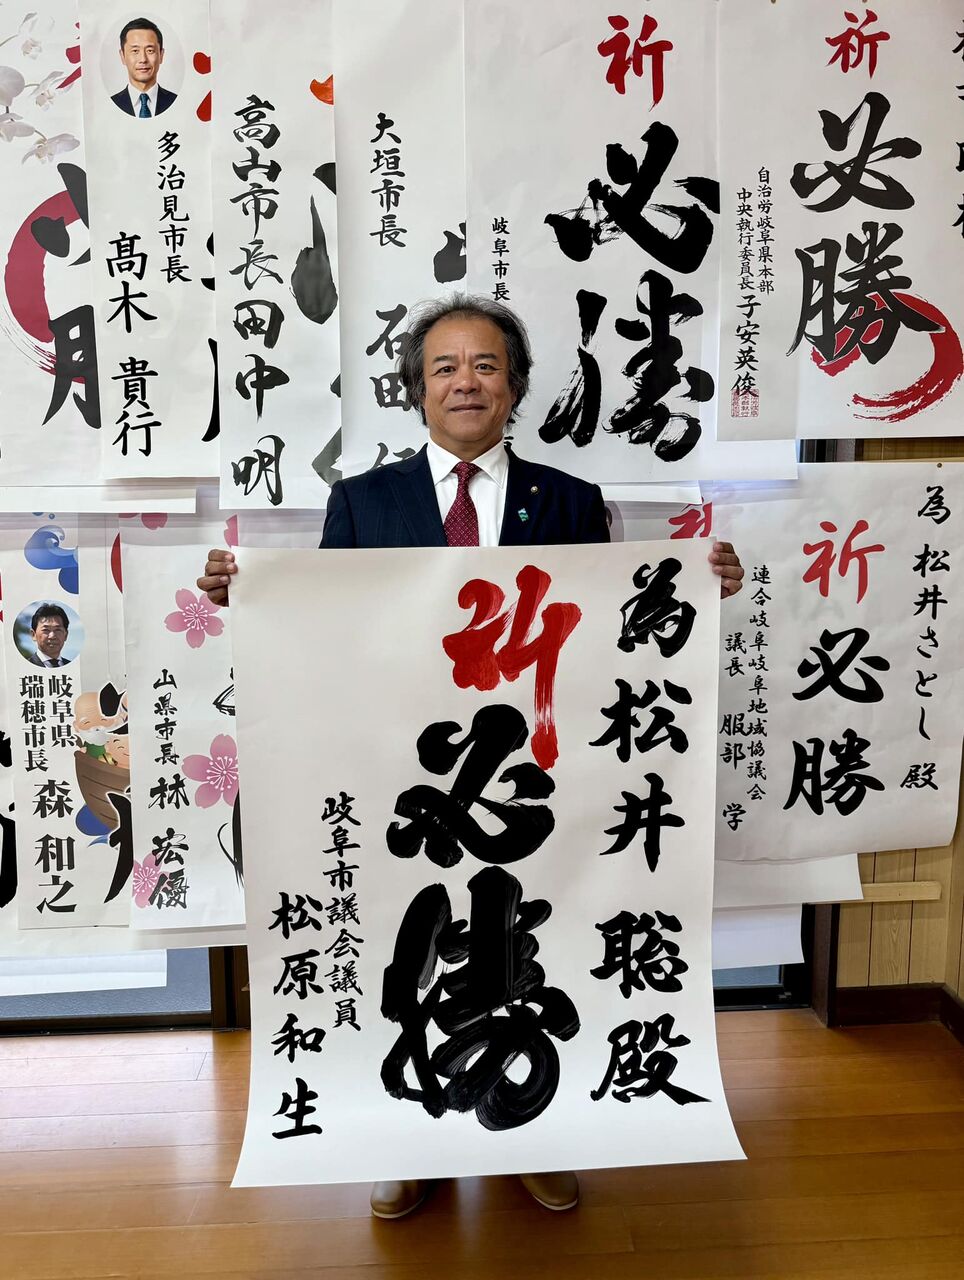 多治見市長
髙木 貴行
高山市長田中 明
大垣市長
石田 仁
祈
必勝
岐阜市長
祈
必勝
自治労岐阜県本部
中央執行委員長 子安英俊
為 松井さとし 殿
祈
必勝
連合岐阜岐阜地域協議会
議長 服部 学
岐阜県
瑞穂市長 森 和之
山県市長 林 宏優
為 松井 聡 殿
祈
必勝
岐阜市議会議員
松原和生